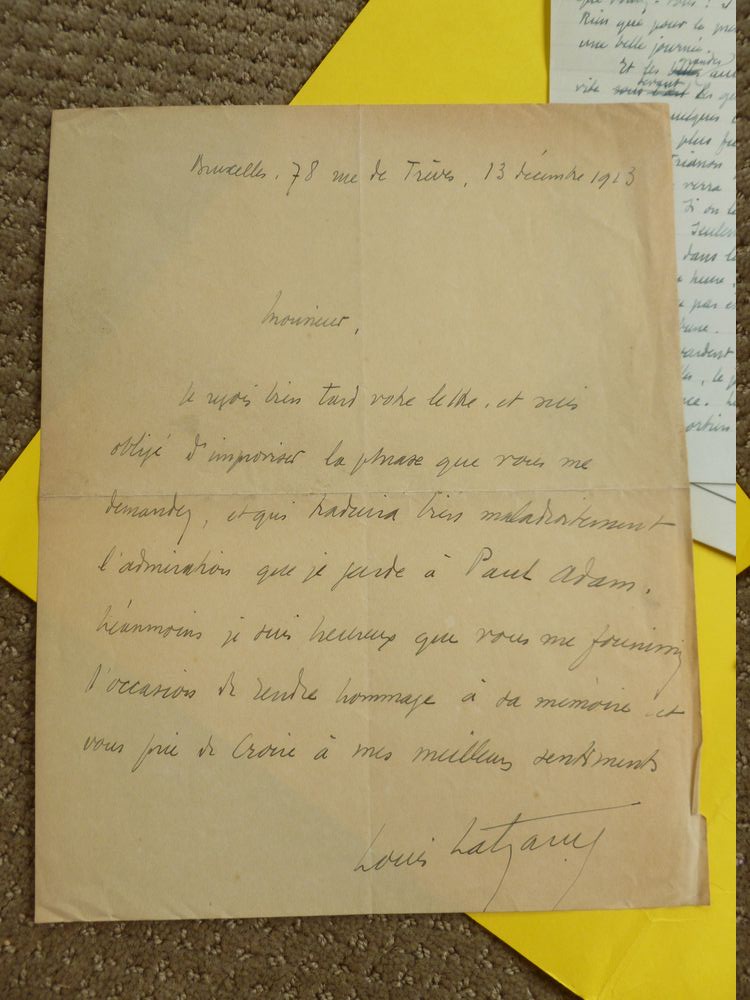 Bruxelles, 78 rue de Trèves, 13 décembre 1923
Monsieur,
Je reçois bien tard votre lettre, et suis
obligé d'improviser la phrase que vous me
demandez, et qui traduira bien maladroitement
l'admiration que je garde à Paul Adam.
Néanmoins je suis heureux que vous me fournissiez
l'occasion de rendre hommage à sa mémoire et
vous prie de croire à mes meilleurs sentiments
Louis Latzarus
Rien que pour la
une belle journée.
grandes
Et les
devant
vite les
plus
Trianon
verra
Si on
dans
heure,
pas